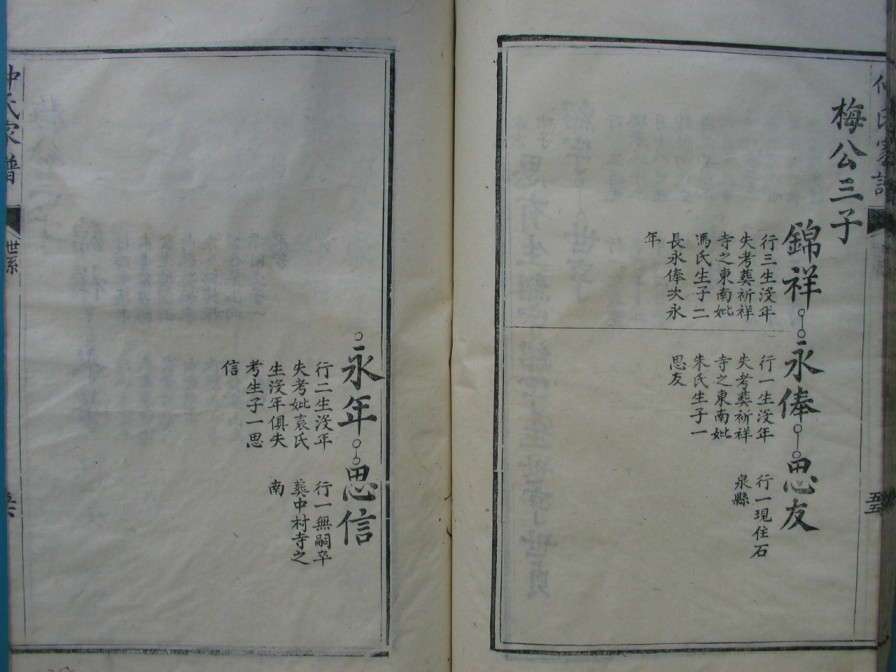 梅公三子
錦祥
行三生没年
失考葬祈祥
寺之東南妣
馮氏生子二
長永俸次永
年
永俸
行一生没年
失考葬祈祥
寺之東南妣
朱氏生子一
思友
思友
行一現住石
泉縣
永年
行二生没年
失考妣袁氏
生没年俱失
考生子一思
信
思信
行一無嗣卒
葬中村寺之
南
氏家譜
世系